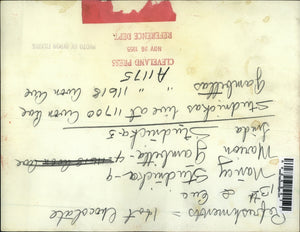 Refreshments = Hot Chocolate
13th & Euc
Nancy Studnicka - 9
Marion Gambitta - 9
Linda Studnicka - 3
Studnickas live at 11700 Avon Ave
Gambittas " 11618 Avon Ave
A1175
CLEVELAND PRESS
NOV 26 1955
REFERENCE DEPT.
PHOTO BY BYRON FILKINS